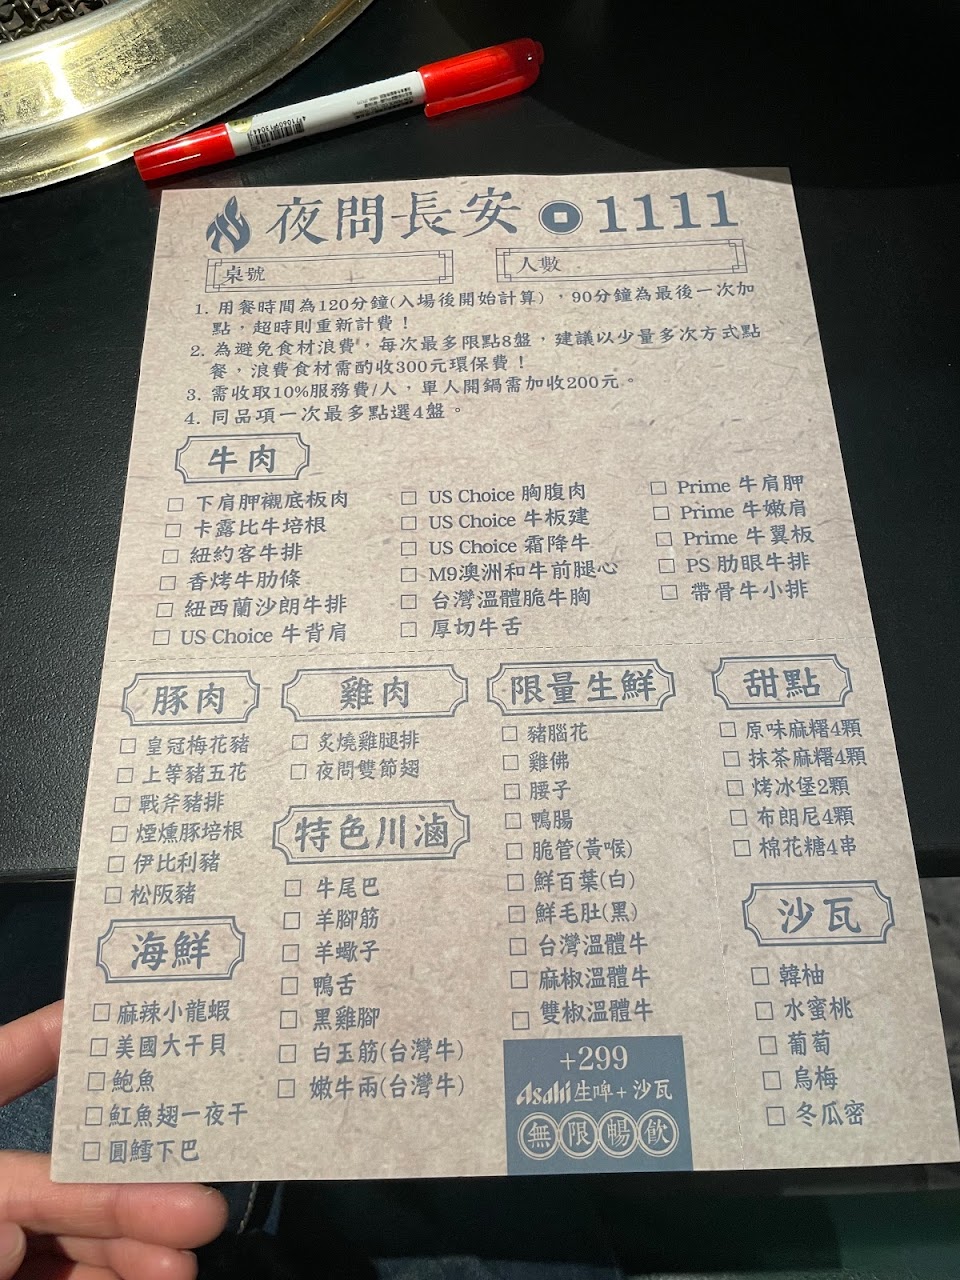 4710609130443
夜問長安 1111
桌號
人數
1. 用餐時間為120分鐘(入場後開始計算)，90分鐘為最後一次加
點，超時則重新計費！
2. 為避免食材浪費，每次最多限點8盤，建議以少量多次方式點
餐，浪費食材需酌收300元環保費！
3. 需收取10%服務費/人，單人開鍋需加收200元。
4. 同品項一次最多點選4盤。
牛肉
下肩胛襯底板肉
卡露比牛培根
紐約客牛排
香烤牛肋條
紐西蘭沙朗牛排
US Choice 牛背肩
US Choice 胸腹肉
US Choice 牛板建
US Choice 霜降牛
M9澳洲和牛前腿心
台灣溫體脆牛胸
厚切牛舌
Prime 牛肩胛
Prime 牛嫩肩
Prime 牛翼板
PS 肋眼牛排
帶骨牛小排
豚肉
皇冠梅花豬
上等豬五花
戰斧豬排
煙燻豚培根
伊比利豬
松阪豬
海鮮
麻辣小龍蝦
美國大干貝
鮑魚
魟魚翅一夜干
圓鱈下巴
雞肉
炙燒雞腿排
夜問雙節翅
特色川滷
牛尾巴
羊腳筋
羊蠍子
鴨舌
黑雞腳
白玉筋(台灣牛)
嫩牛兩(台灣牛)
限量生鮮
豬腦花
雞佛
腰子
鴨腸
脆管(黃喉)
鮮百葉(白)
鮮毛肚(黑)
台灣溫體牛
麻椒溫體牛
雙椒溫體牛
+299
Asahi 生啤+沙瓦
無限暢飲
甜點
原味麻糬4顆
抹茶麻糬4顆
烤冰堡2顆
布朗尼4顆
棉花糖4串
沙瓦
韓柚
水蜜桃
葡萄
烏梅
冬瓜密